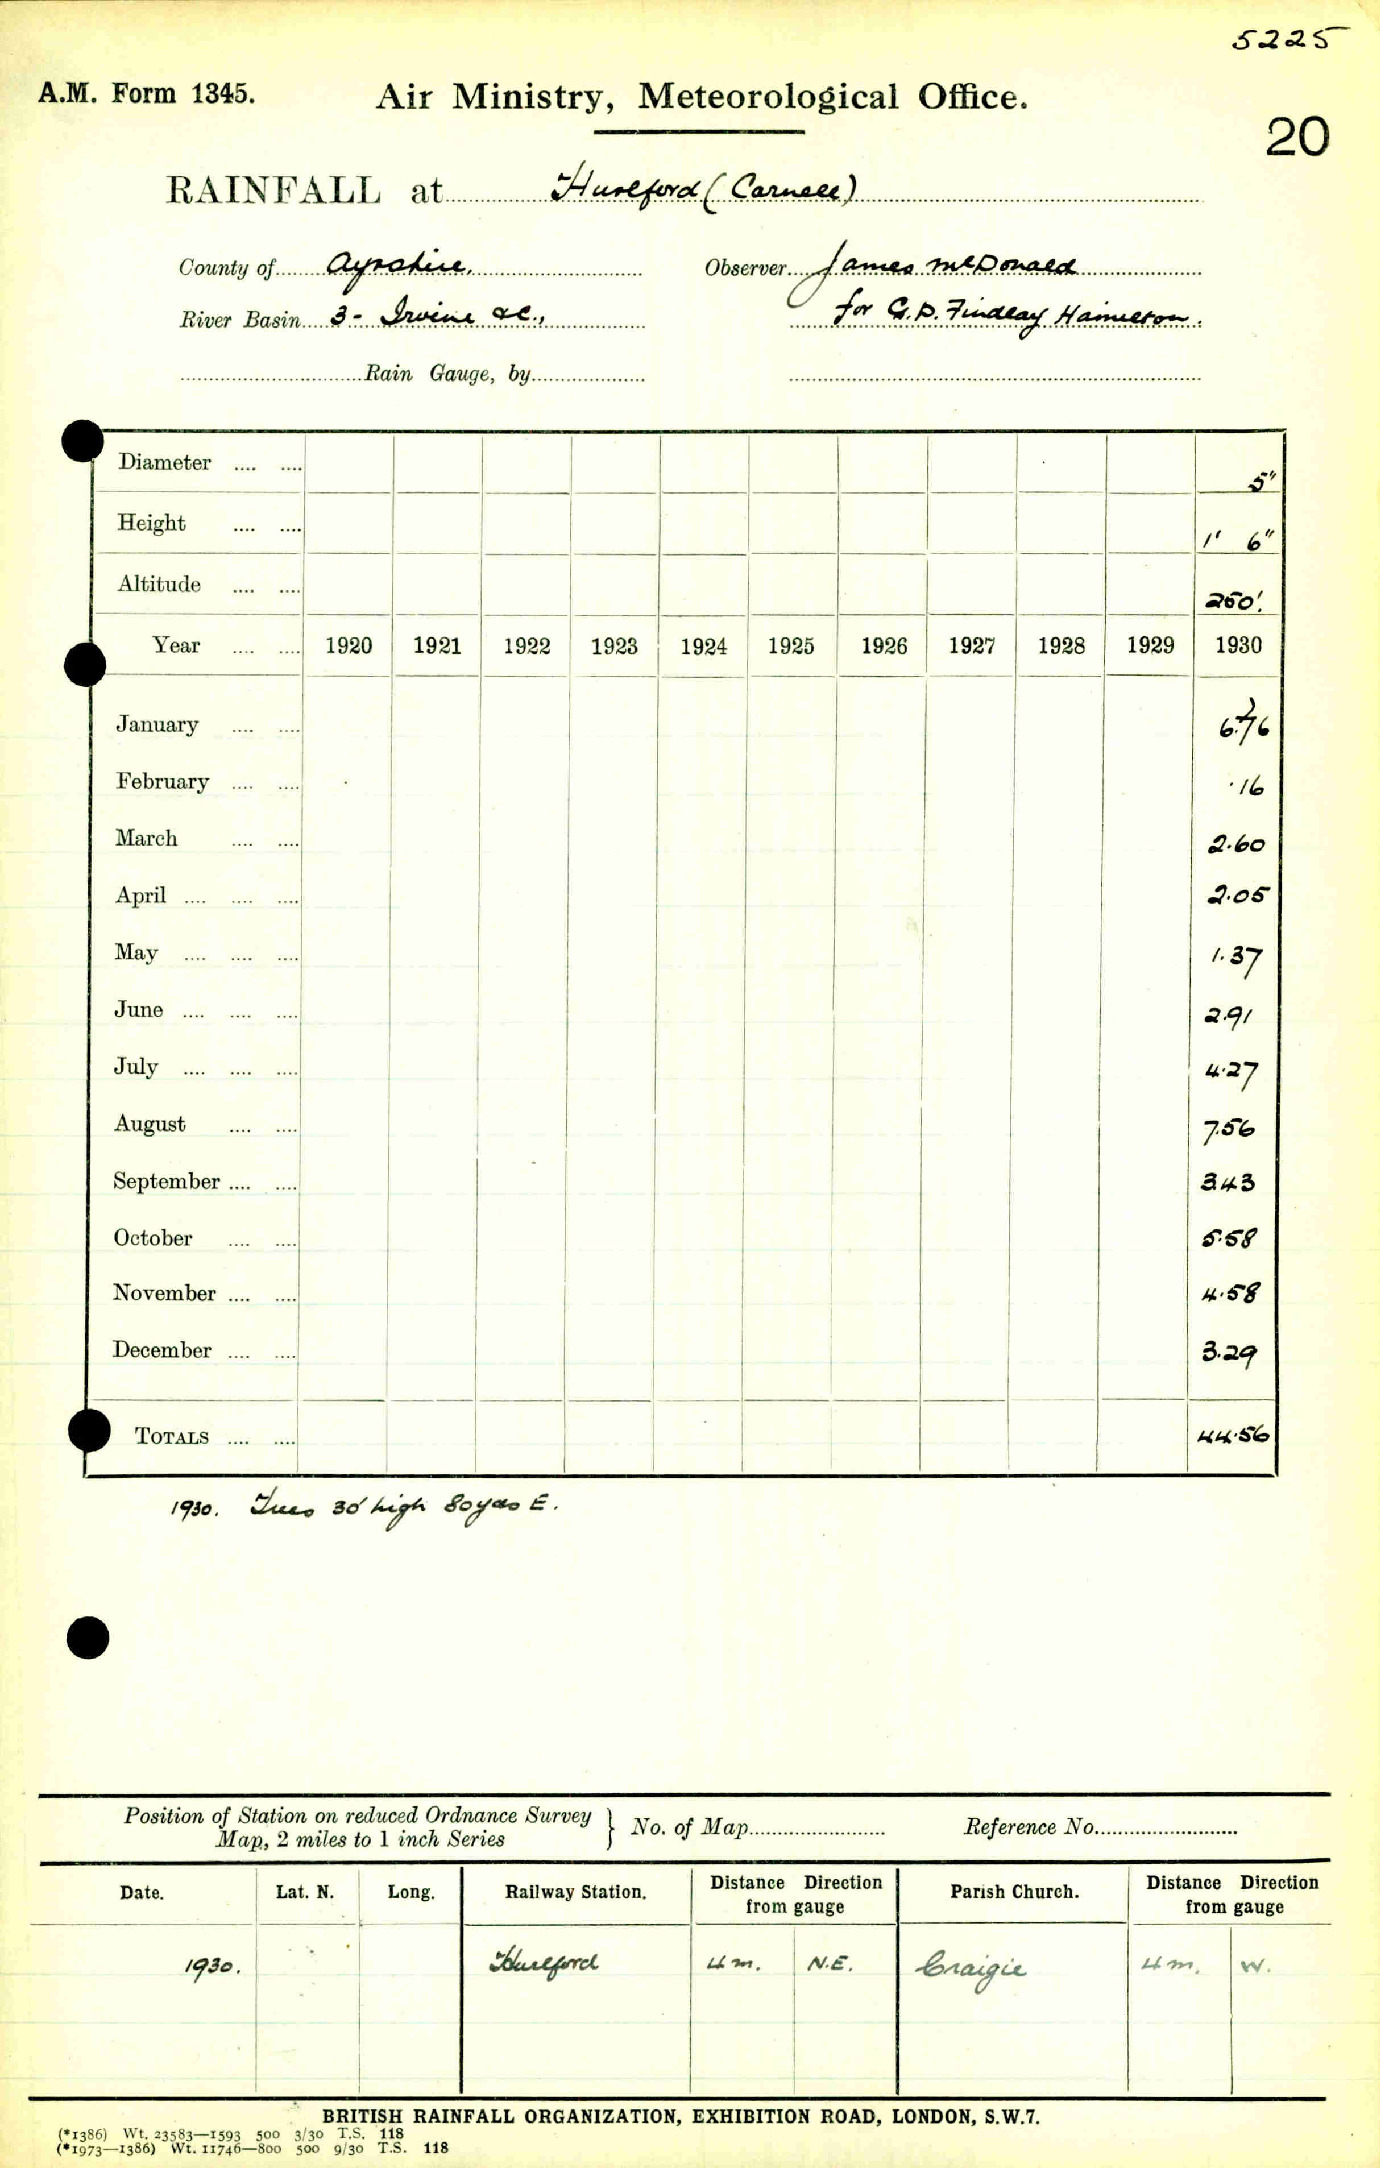 5225
A.M. Form 1345. Air Ministry, Meteorological Office.
20
RAINFALL at Hurlford (Carnell)
County of Ayrshire. Observer James McDonald
River Basin 3 - Irvine &c., for G.D. Findlay Hamilton.
Rain Gauge, by
Diameter .... .... 5"
Height .... .... 1' 6"
Altitude .... .... 250'.
Year .... .... 1920 1921 1922 1923 1924 1925 1926 1927 1928 1929 1930
January .... .... 6.76
February .... .... .16
March .... .... 2.60
April .... .... .... 2.05
May .... .... .... 1.37
June .... .... .... 2.91
July .... .... .... 4.27
August .... .... 7.56
September .... .... 3.43
October .... .... 5.58
November .... .... 4.58
December .... .... 3.29
TOTALS .... .... 44.56
1930. Trees 30' high 80 yds E.
Position of Station on reduced Ordnance Survey
Map, 2 miles to 1 inch Series } No. of Map Reference No.
Date. Lat. N. Long. Railway Station. Distance Direction from gauge Parish Church. Distance Direction from gauge
1930. Hurlford 4 m. N.E. Craigie 4 m. W.
BRITISH RAINFALL ORGANIZATION, EXHIBITION ROAD, LONDON, S.W.7.
(*1386) Wt. 23583—1593 500 3/30 T.S. 118
(*1973—1386) Wt. 11746—800 500 9/30 T.S. 118